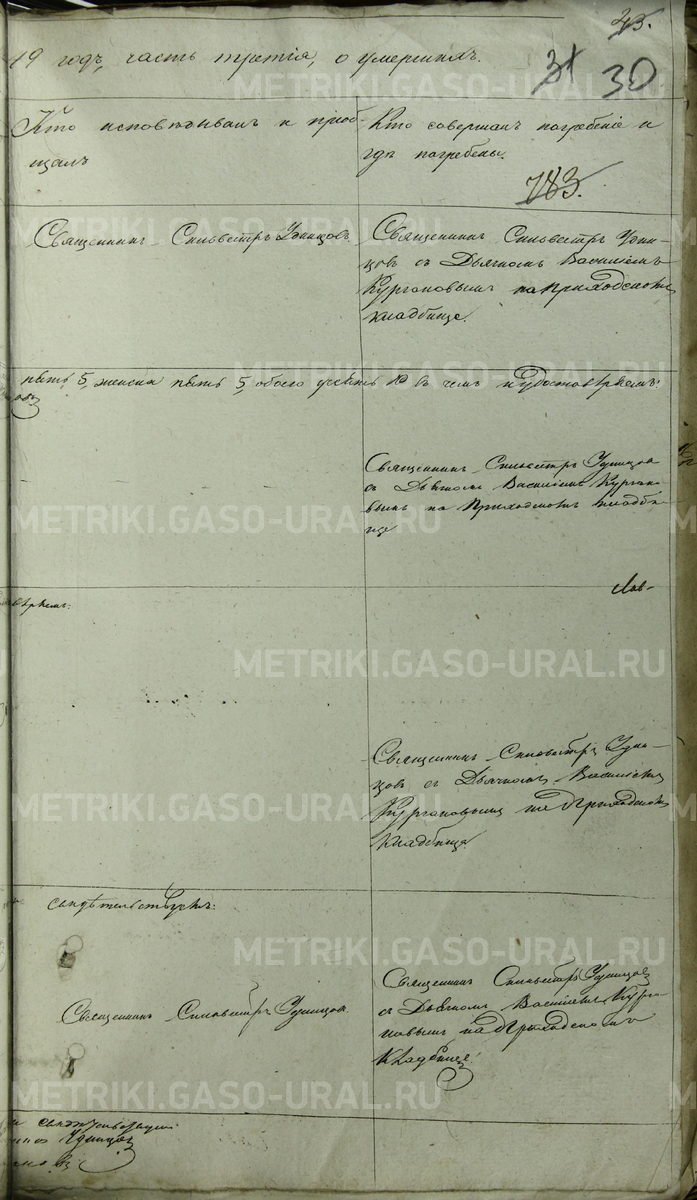 35.
49 годъ, часть третія, о умершихъ.
31 30
Кто исповѣдывалъ и пріоб-
щалъ
Кто совершалъ погребеніе и
гдѣ погребены.
783.
Священникъ Сильвестръ Удинцовъ
Священникъ Сильвестръ Удин-
цовъ съ Дьячкомъ Василіемъ
Кургановымъ на приходскомъ
кладбище.
пять 5, женска пять 5, обоего десять 10 въ чемъ и удостовѣряемъ:
Священникъ Сильвестръ Удинцовъ
съ Дьячкомъ Василіемъ Курган-
вымъ на Приходскомъ кладби-
ще
вѣряемъ:
Священникъ Сильвестръ Удин-
цовъ съ Дьячкомъ Василіемъ
Кургановымъ на Приходскомъ
кладбище.
свидѣтельствуемъ:
Священникъ Сильвестръ Удинцовъ
Священникъ Сильвестръ Удинцовъ
съ Дьячкомъ Василіемъ Курга-
новымъ на Приходскомъ
кладбище.
Удинцовъ
METRIKI.GASO-URAL.RU